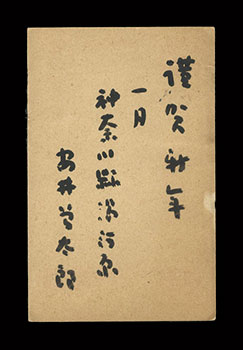 謹賀新年
一月
神奈川縣湯河原
安井曽太郎